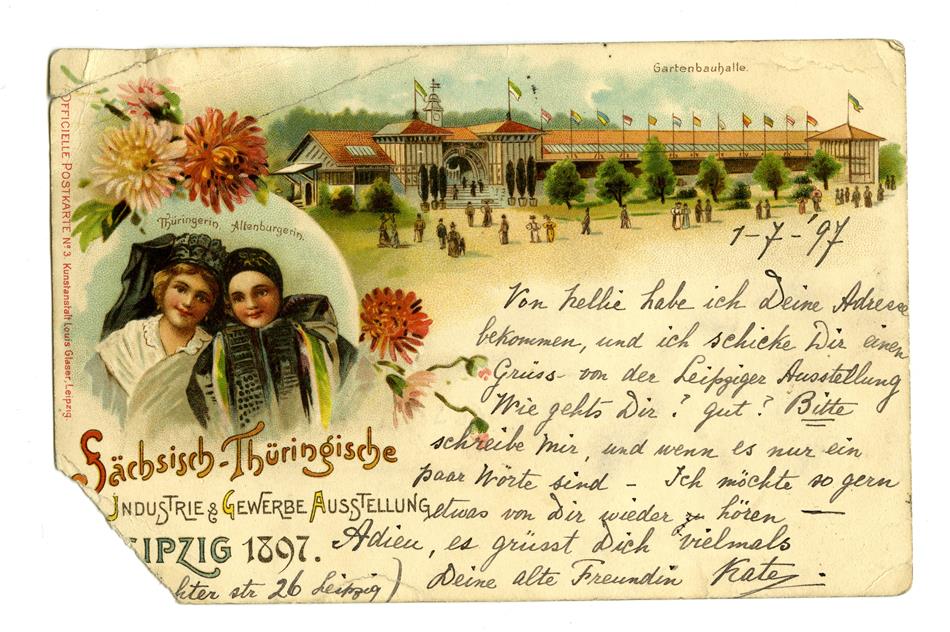 Gartenbauhalle.
OFFICIELLE POSTKARTE No 3. Kunstanstalt Louis Glaser, Leipzig.
Thüringerin, Altenburgerin.
1-7-'97
Von Nellie habe ich Deine Adresse
bekommen, und ich schicke Dir einen
Grüss von der Leipziger Ausstellung
Wie gehts Dir? gut? Bitte
schreibe mir, und wenn es nur ein
paar Wörte sind – Ich möchte so gern
etwas von Dir wieder zu hören —
Adieu, es grüsst Dich vielmals
Deine alte Freundin Kate.
Sächsisch-Thüringische
INDUSTRIE & GEWERBE AUSSTELLUNG
EIPZIG 1897.
hter str 26 Leipzig)